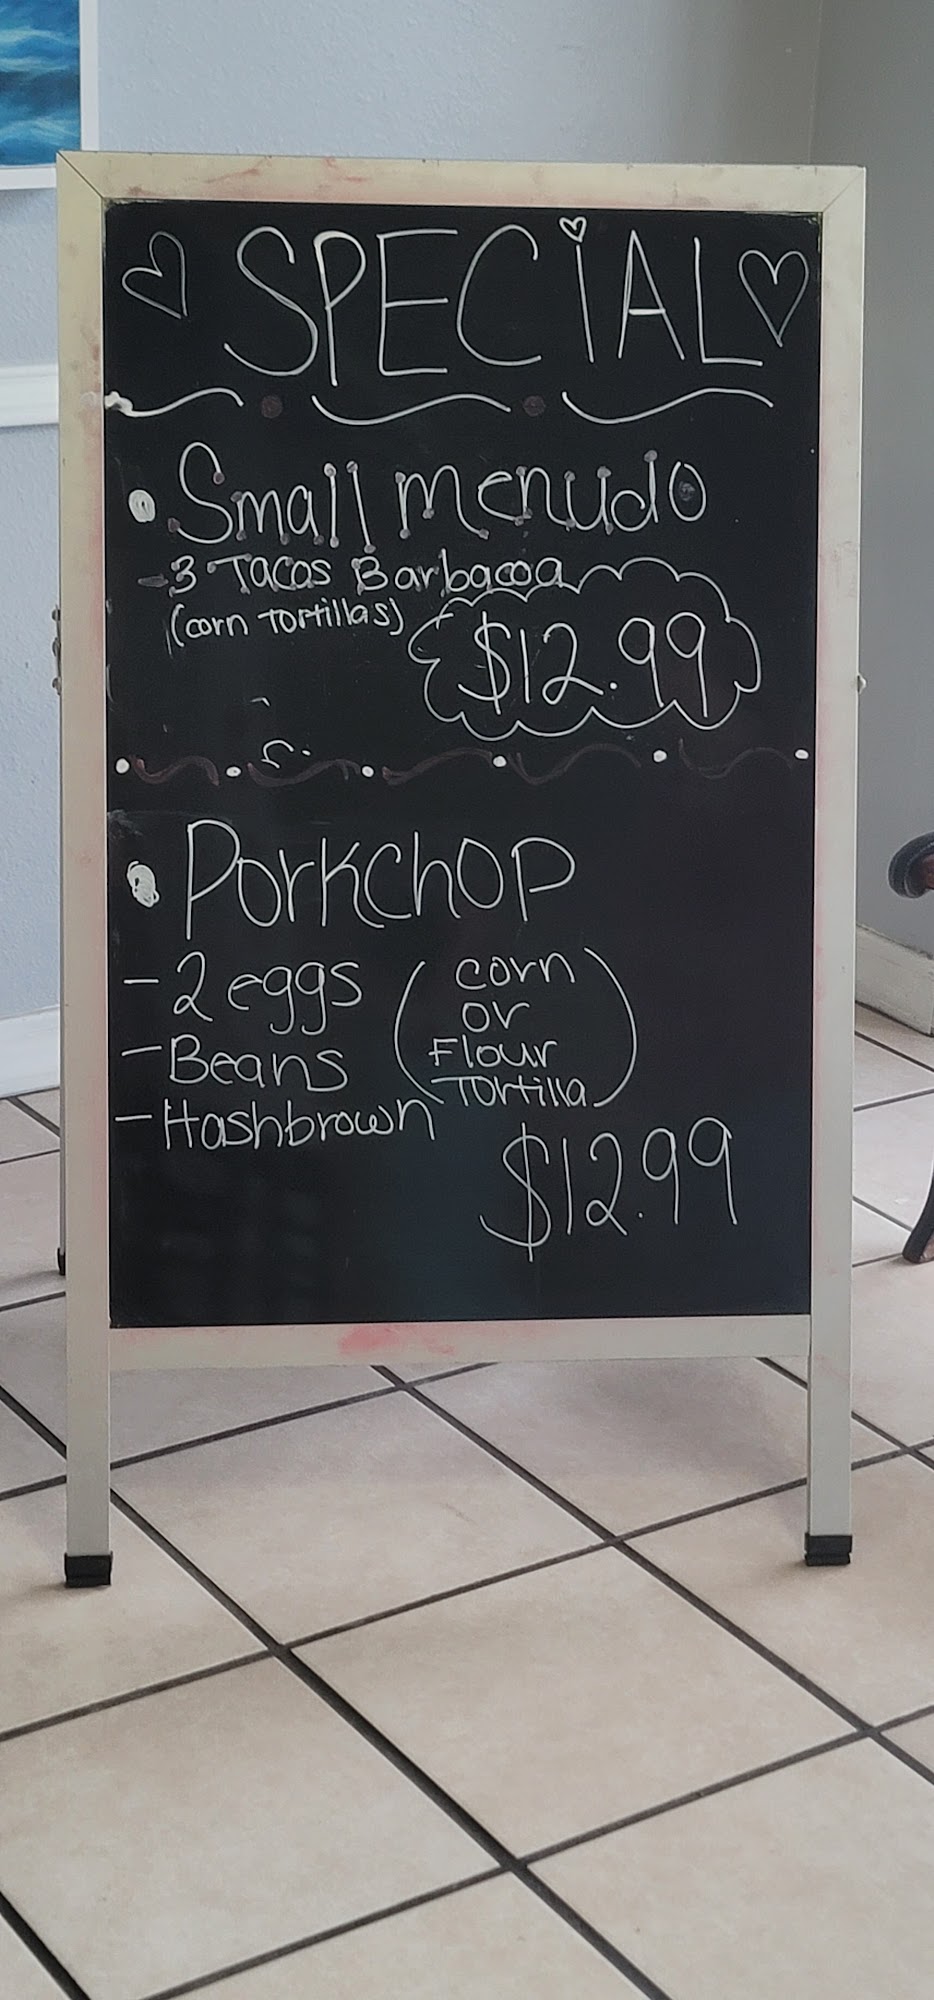 SPECiAL
Small menudo
-3 Tacos Barbacoa
(corn Tortillas)
$12.99
Porkchop
-2 eggs
-Beans
-Hashbrown
(corn
or
Flour
Tortilla)
$12.99